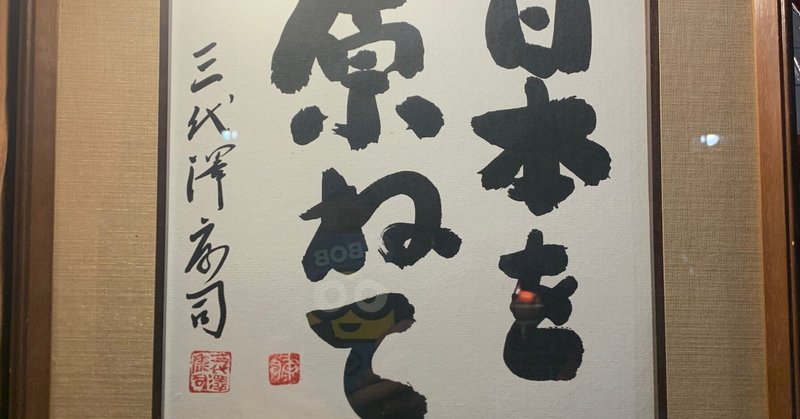 日本を
原ねて
三代澤康司
BOB